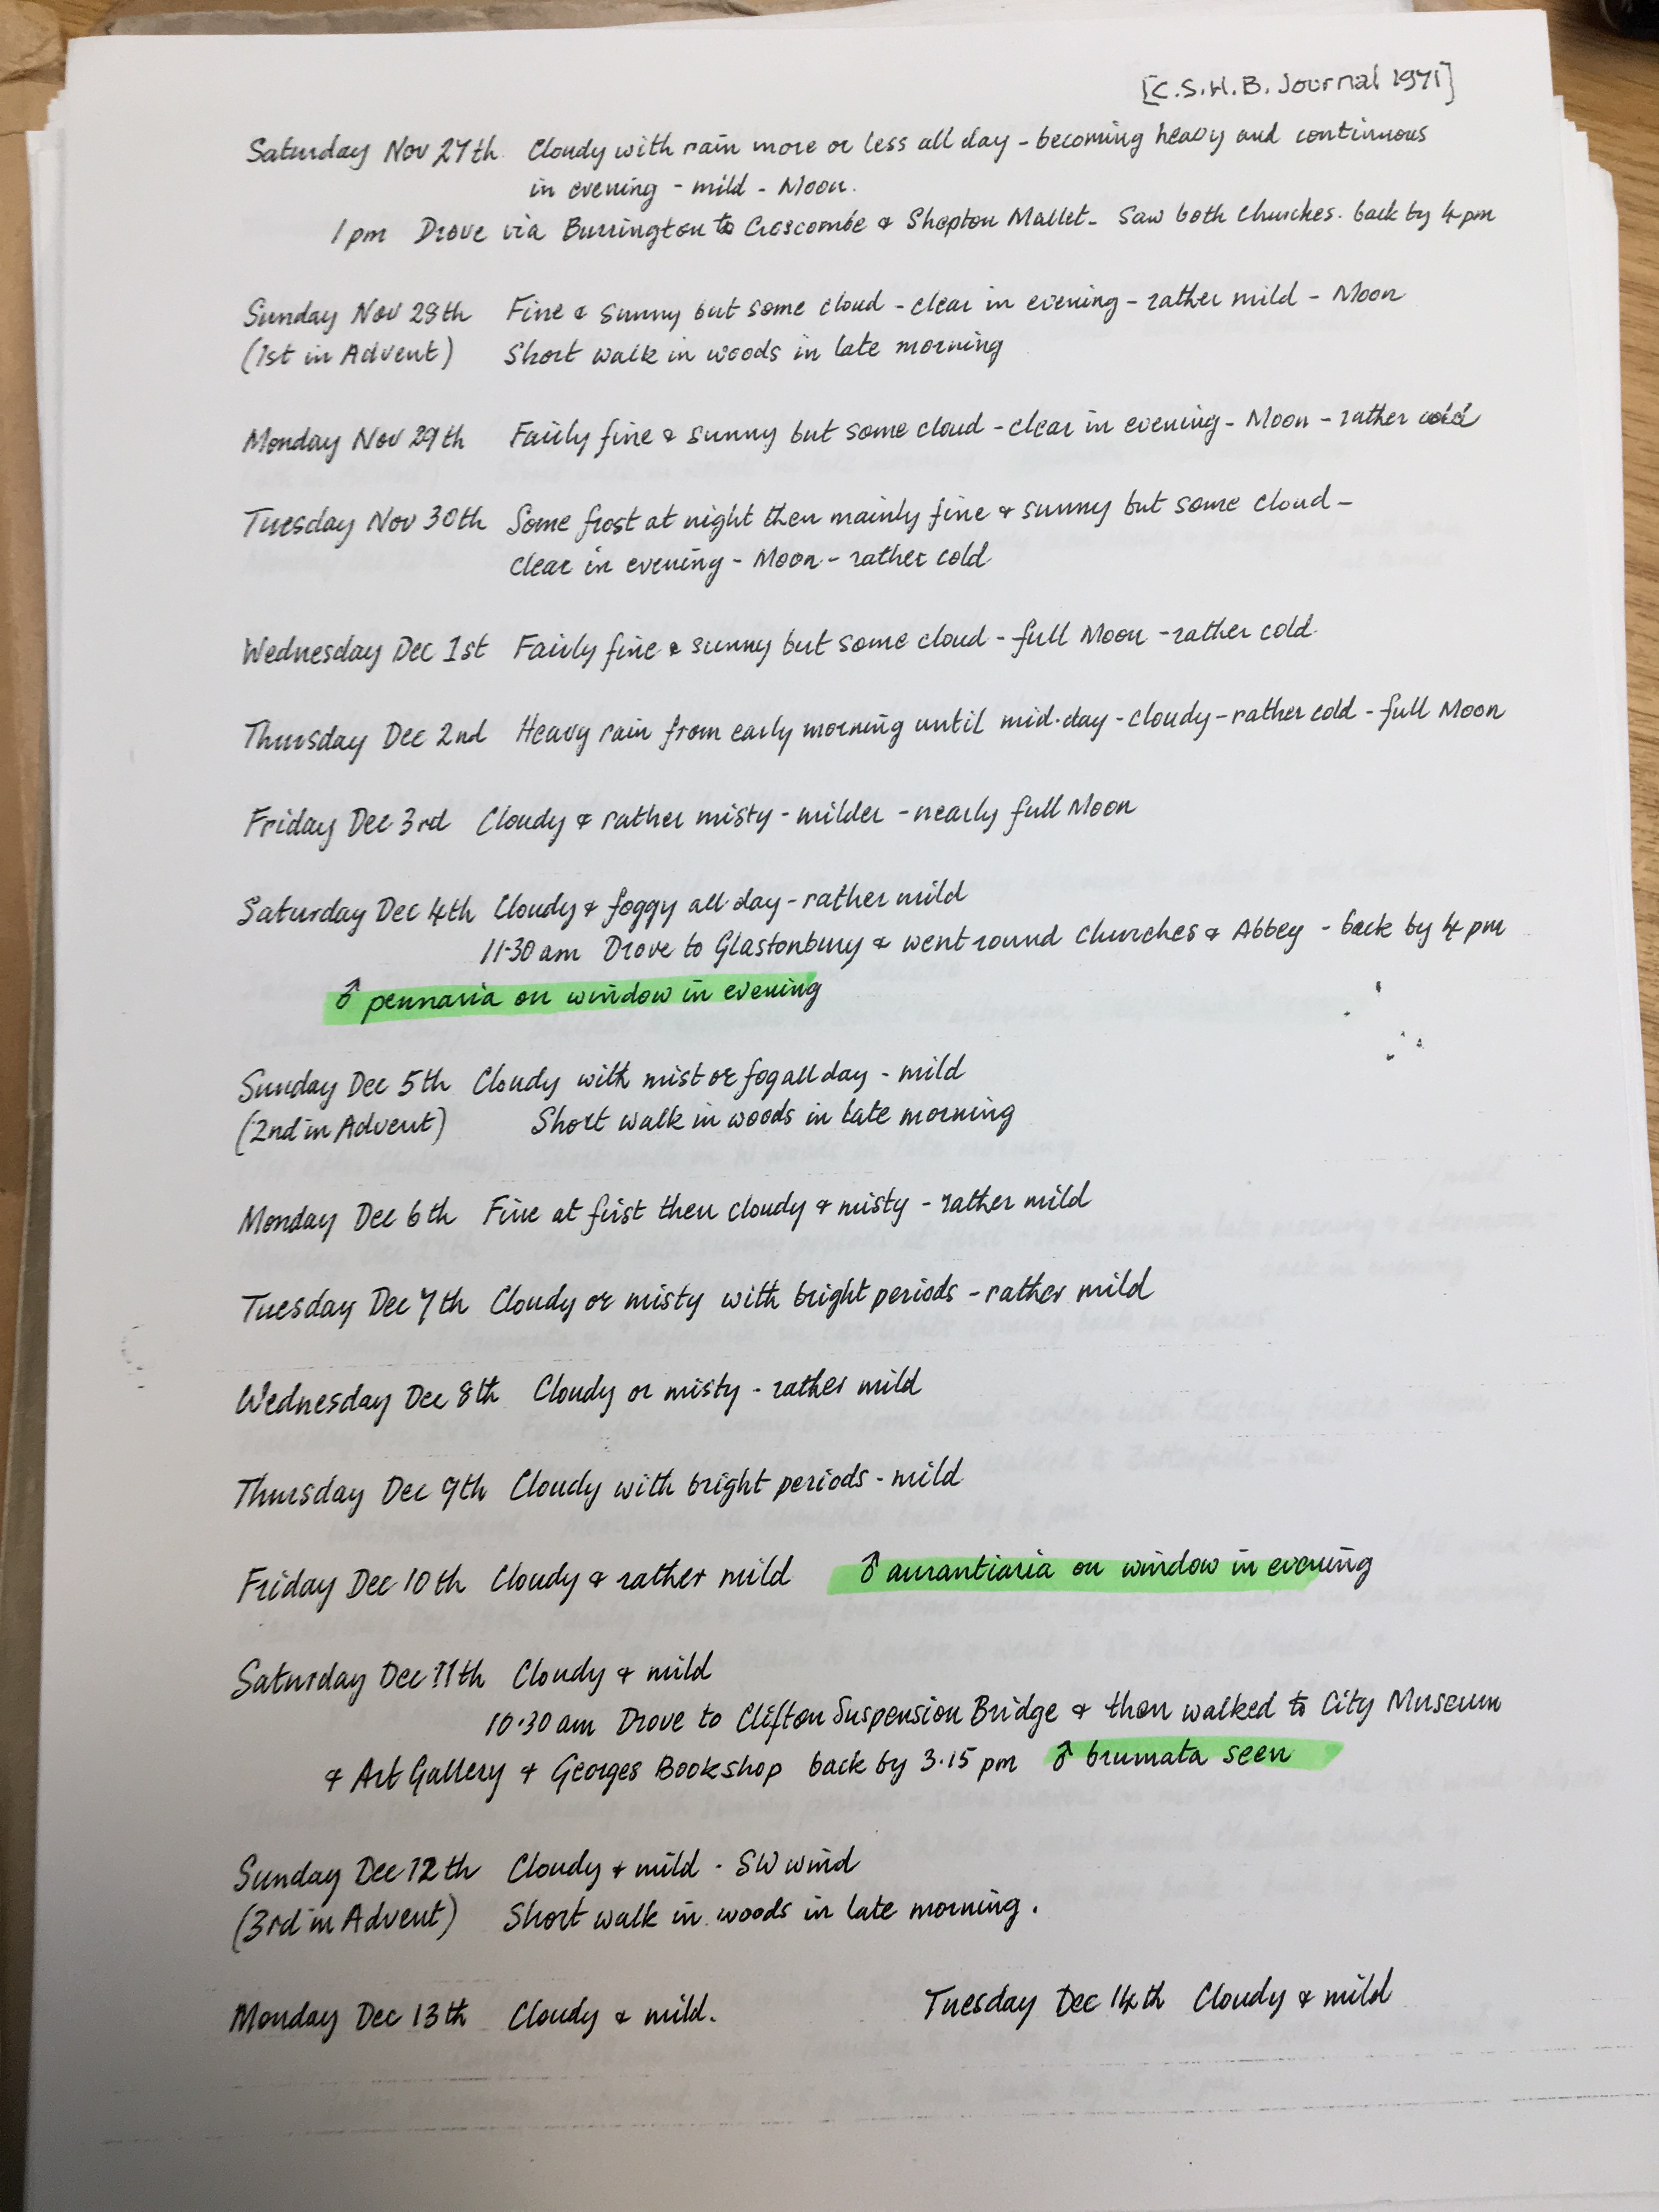 [C.S.H.B. Journal 1971]
Saturday Nov 27th Cloudy with rain more or less all day - becoming heavy and continuous
in evening - mild - Moon.
1 pm Drove via Burrington to Croscombe & Shepton Mallet - Saw both churches. back by 4 pm
Sunday Nov 28th Fine & sunny but some cloud - clear in evening - rather mild - Moon
(1st in Advent) Short walk in woods in late morning
Monday Nov 29th Fairly fine & sunny but some cloud - clear in evening - Moon - rather cold
Tuesday Nov 30th Some frost at night then mainly fine & sunny but some cloud -
clear in evening - Moon - rather cold
Wednesday Dec 1st Fairly fine & sunny but some cloud - full Moon - rather cold.
Thursday Dec 2nd Heavy rain from early morning until mid-day - cloudy - rather cold - full Moon
Friday Dec 3rd Cloudy & rather misty - milder - nearly full Moon
Saturday Dec 4th Cloudy & foggy all day - rather mild
11.30 am Drove to Glastonbury & went round churches & Abbey - back by 4 pm
♂ pennaria on window in evening
Sunday Dec 5th Cloudy with mist or fog all day - mild
(2nd in Advent) Short walk in woods in late morning
Monday Dec 6th Fine at first then cloudy & misty - rather mild
Tuesday Dec 7th Cloudy or misty with bright periods - rather mild
Wednesday Dec 8th Cloudy or misty - rather mild
Thursday Dec 9th Cloudy with bright periods - mild
Friday Dec 10th Cloudy & rather mild ♂ aurantiaria on window in evening
Saturday Dec 11th Cloudy & mild
10.30 am Drove to Clifton Suspension Bridge & then walked to City Museum
& Art Gallery & Georges Bookshop back by 3.15 pm ♂ brumata seen
Sunday Dec 12th Cloudy & mild - SW wind
(3rd in Advent) Short walk in woods in late morning.
Monday Dec 13th Cloudy & mild. Tuesday Dec 14th Cloudy & mild